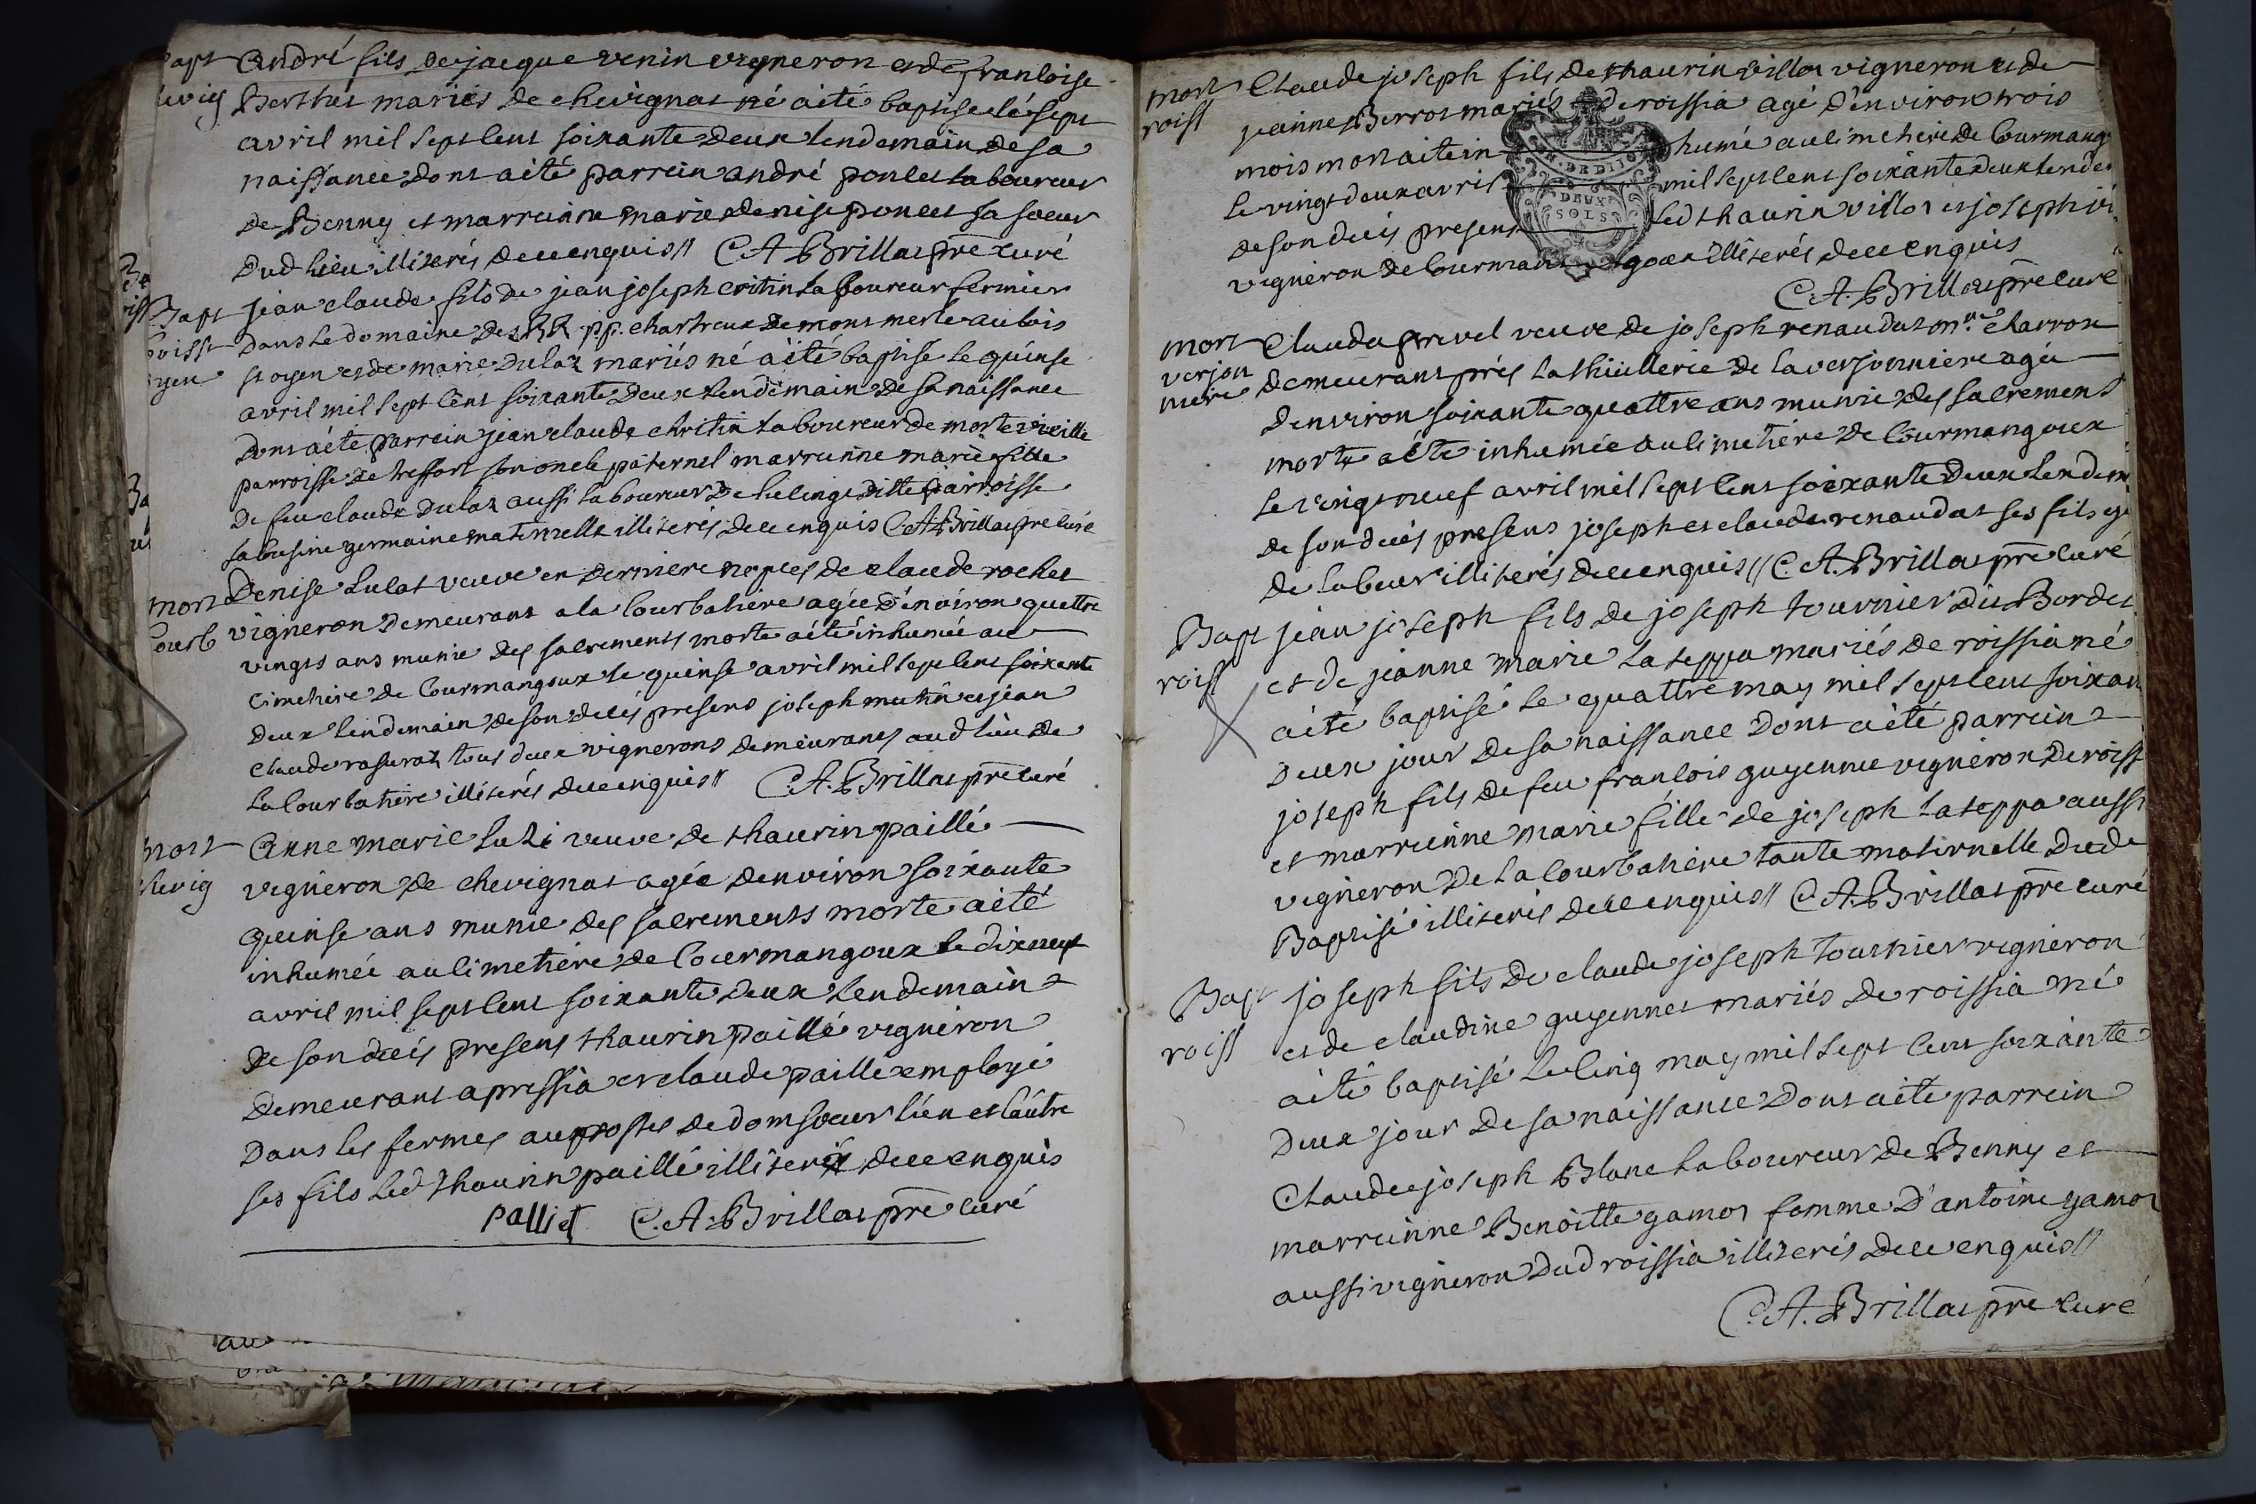 Bapt André fils de jacque venin vigneron et de francoise
chevig Berthet mariés de chevignat né aité baptisé le sept
avril mil sept cent soixante deux lendemain de sa
naissance dont aité parrein andré poncet laboureur
de Benny et marreinne marie denise poncet sa soeur
dud lieu illiterés de ce enquis// C. A. Brillat prè curé
Bapt jean claude fils de jean joseph critin laboureur fermier
dans le domaine des RR pp. chartreux de montmerle au bois
st oyen et de marie dulaz mariés né aité baptisé le quinse
avril mil sept cent soixante deux lendemain de sa naissance
dont aété parrein jean claude chritin laboureur de morte vieille
parroisse de treffort son oncle paternel marreinne marie fille
de feu claude dulaz aussi laboureur de ditte parroisse
sa cousine germaine maternelle illiterés de ce enquis C A Brillat prè curé
mort Denise Lulat veuve en derniere nopces de claude rochet
Courb vigneron demeurant a la Courbatiere agée d'environ quattre
vingts ans munie des sacrements morte aété inhumée au
cimetiere de Courmangoux le quinse avril mil sept cent soixante
deux lendemain de son decés presens joseph mutin et jean
claude rasuraz tous deux vignerons demeurants aud lieu de
la Courbatiere illiterés de ce enquis// C. A. Brillat prè curé
mort Anne marie luzi veuve de thaurin paillé
chevig vigneron de chevignat agée denviron soixante
quinse ans munie des sacrements morte aété
inhumée au cimetiére de Courmangoux le dixneuf
avril mil sept cent soixante deux lendemain
de son decés presens thaurin paillé vigneron
demeurant a pressia et claude paillé employé
dans les fermes au postes de domsoeur l'un et l'autre
ses fils led thaurin paillé illiteré de ce enquis
palliet C. A. Brillat prè curé
mort Claude joseph fils de thaurin villot vigneron et de
roiss jeanne Berrot mariés de roissia agé d'environ trois
mois mort aité in humé au cimetiere de Courmang
le vingt deux avril mil sept cent soixante deux lende
de son decés presens led thaurin villot et joseph vi
vigneron de Courman goux illiterés de ce enquis
DEUX
SOLS
C. A. Brillat prè curé
mort Clauda pravel veuve de joseph renaudat mre charron
verjon demeurant prés la thiullerie de la verjonniere agée
niere denviron soixante quattre ans munie des sacrement
morte aété inhumée au cimetiére de Courmangoux
le vingt neuf avril mil sept cent soixante deux lendem
de son decés presens joseph et claude renaudat ses fils
de labeur illiterés de ce enquis// C. A. Brillat prè curé
Bapt jean joseph fils de joseph tournier dit Bordet
roiss et de jeanne marie lateppa mariés de roissia né
aité baptisé le quattre may mil sept cent soixan
deux jour de sa naissance dont aété parrein
joseph fils de feu francois guyennet vigneron de roiss
et marreinne marie fille de joseph lateppa aussi
vigneron de la Courbatiere tante maternelle dude
Baptisé illiterés de ce enquis// C. A. Brillat prè curé
Bapt joseph fils de claude joseph tournier vigneron
roiss et de claudine guyennet mariés de roissia né
aité baptisé le cinq may mil sept cent soixante
deux jour de sa naissance dont aité parrein
Claude joseph Blanc laboureur de Benny et
marreinne Benoitte gamot femme d'antoine gamot
aussi vigneron dud roissia illiterés de ce enquis//
C. A. Brillat prè curé